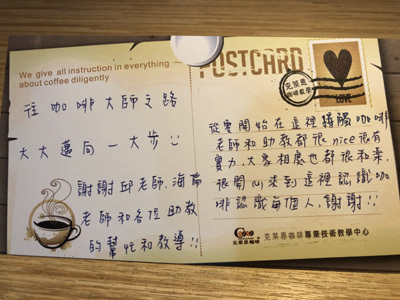 We give all instruction in everything
about coffee diligently
往咖啡大師之路
大大邁向一大步
謝謝邱老師、海
老師和各位助教
的幫忙和教導!!
POSTCARD
克萊恩
咖啡教學
LOVE
從零開始在這裡接觸咖啡
老師和助教都很nice很有
實力,大家相處也都很和樂,
很開心來到這裡認識咖
啡認識每個人,謝謝!!
克萊恩咖啡
克萊恩咖啡專業技術教學中心